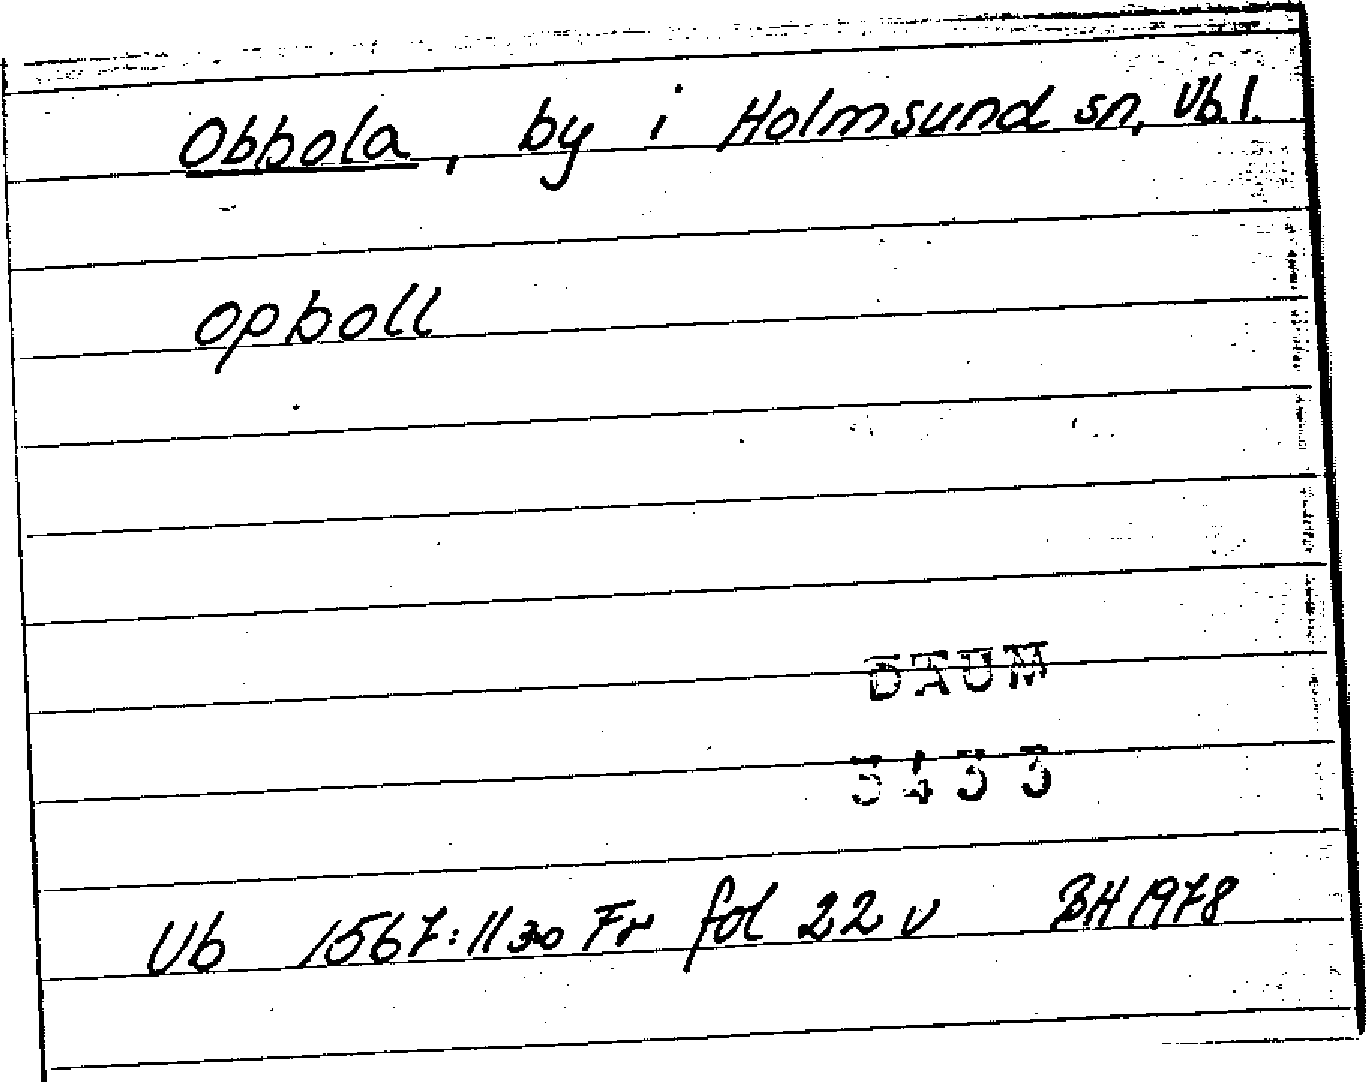 Obbola, by i Holmsund sn, Vb. l.
opboll
DAUM
3433
Vb 1567:11 30 Fr fol 22 v BH 1978